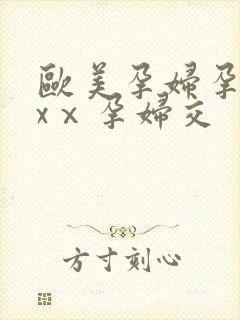 歐美孕婦孕
xx 孕婦交
方寸刻心